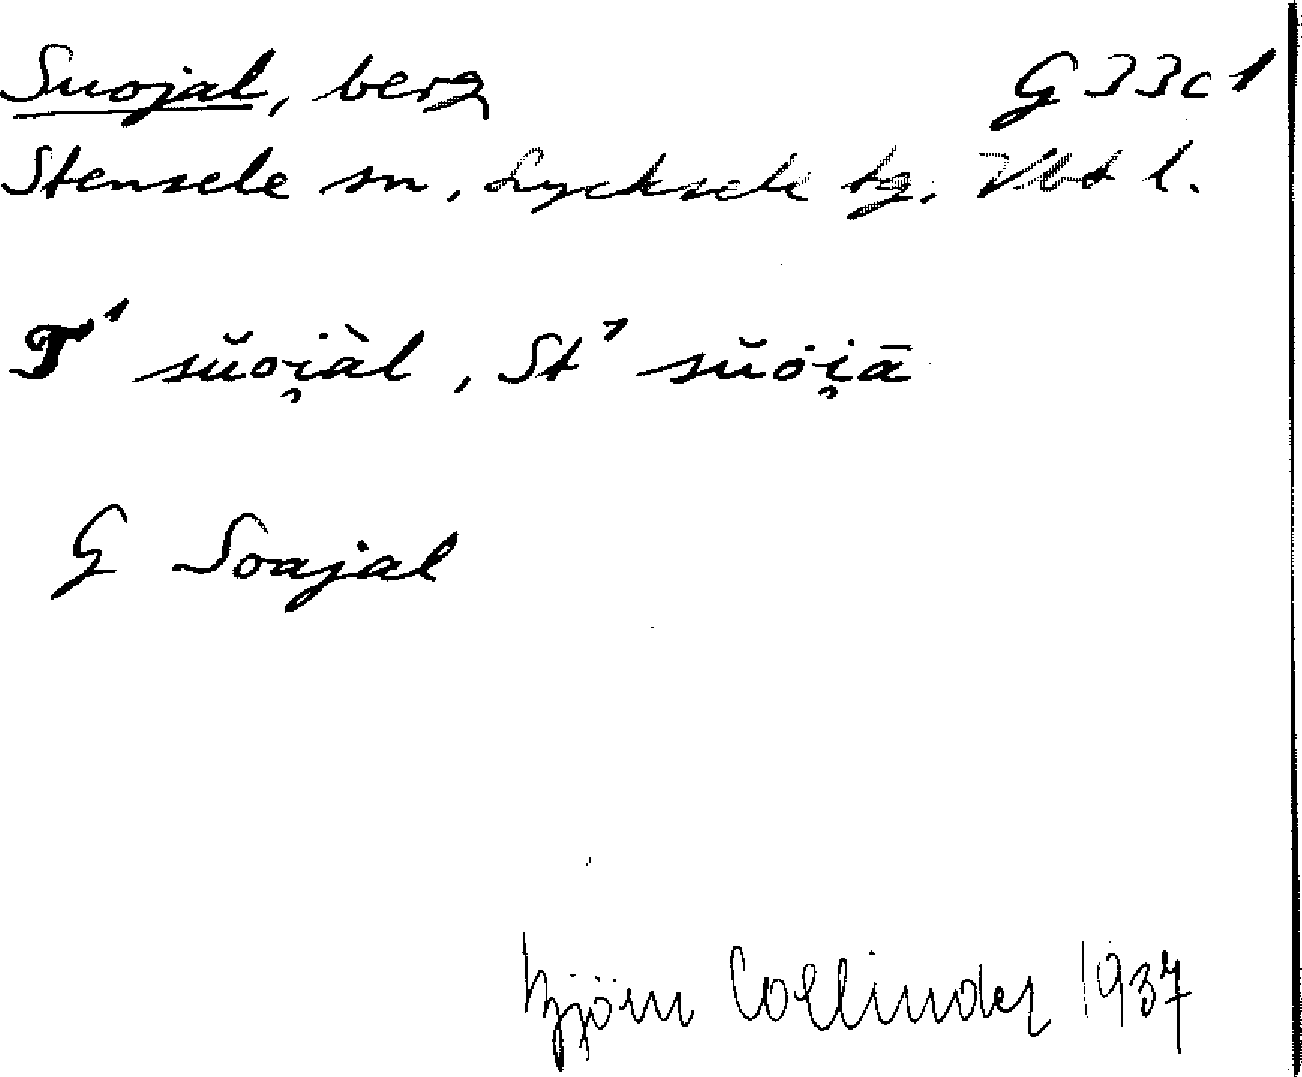 Suojal, berg G 33c1
Stensele sn, Lycksele tg, Vbt l.
T¹ sŭoi̯àl, St¹ sŭói̯ā
G Soajal
Björn Collinder 1937